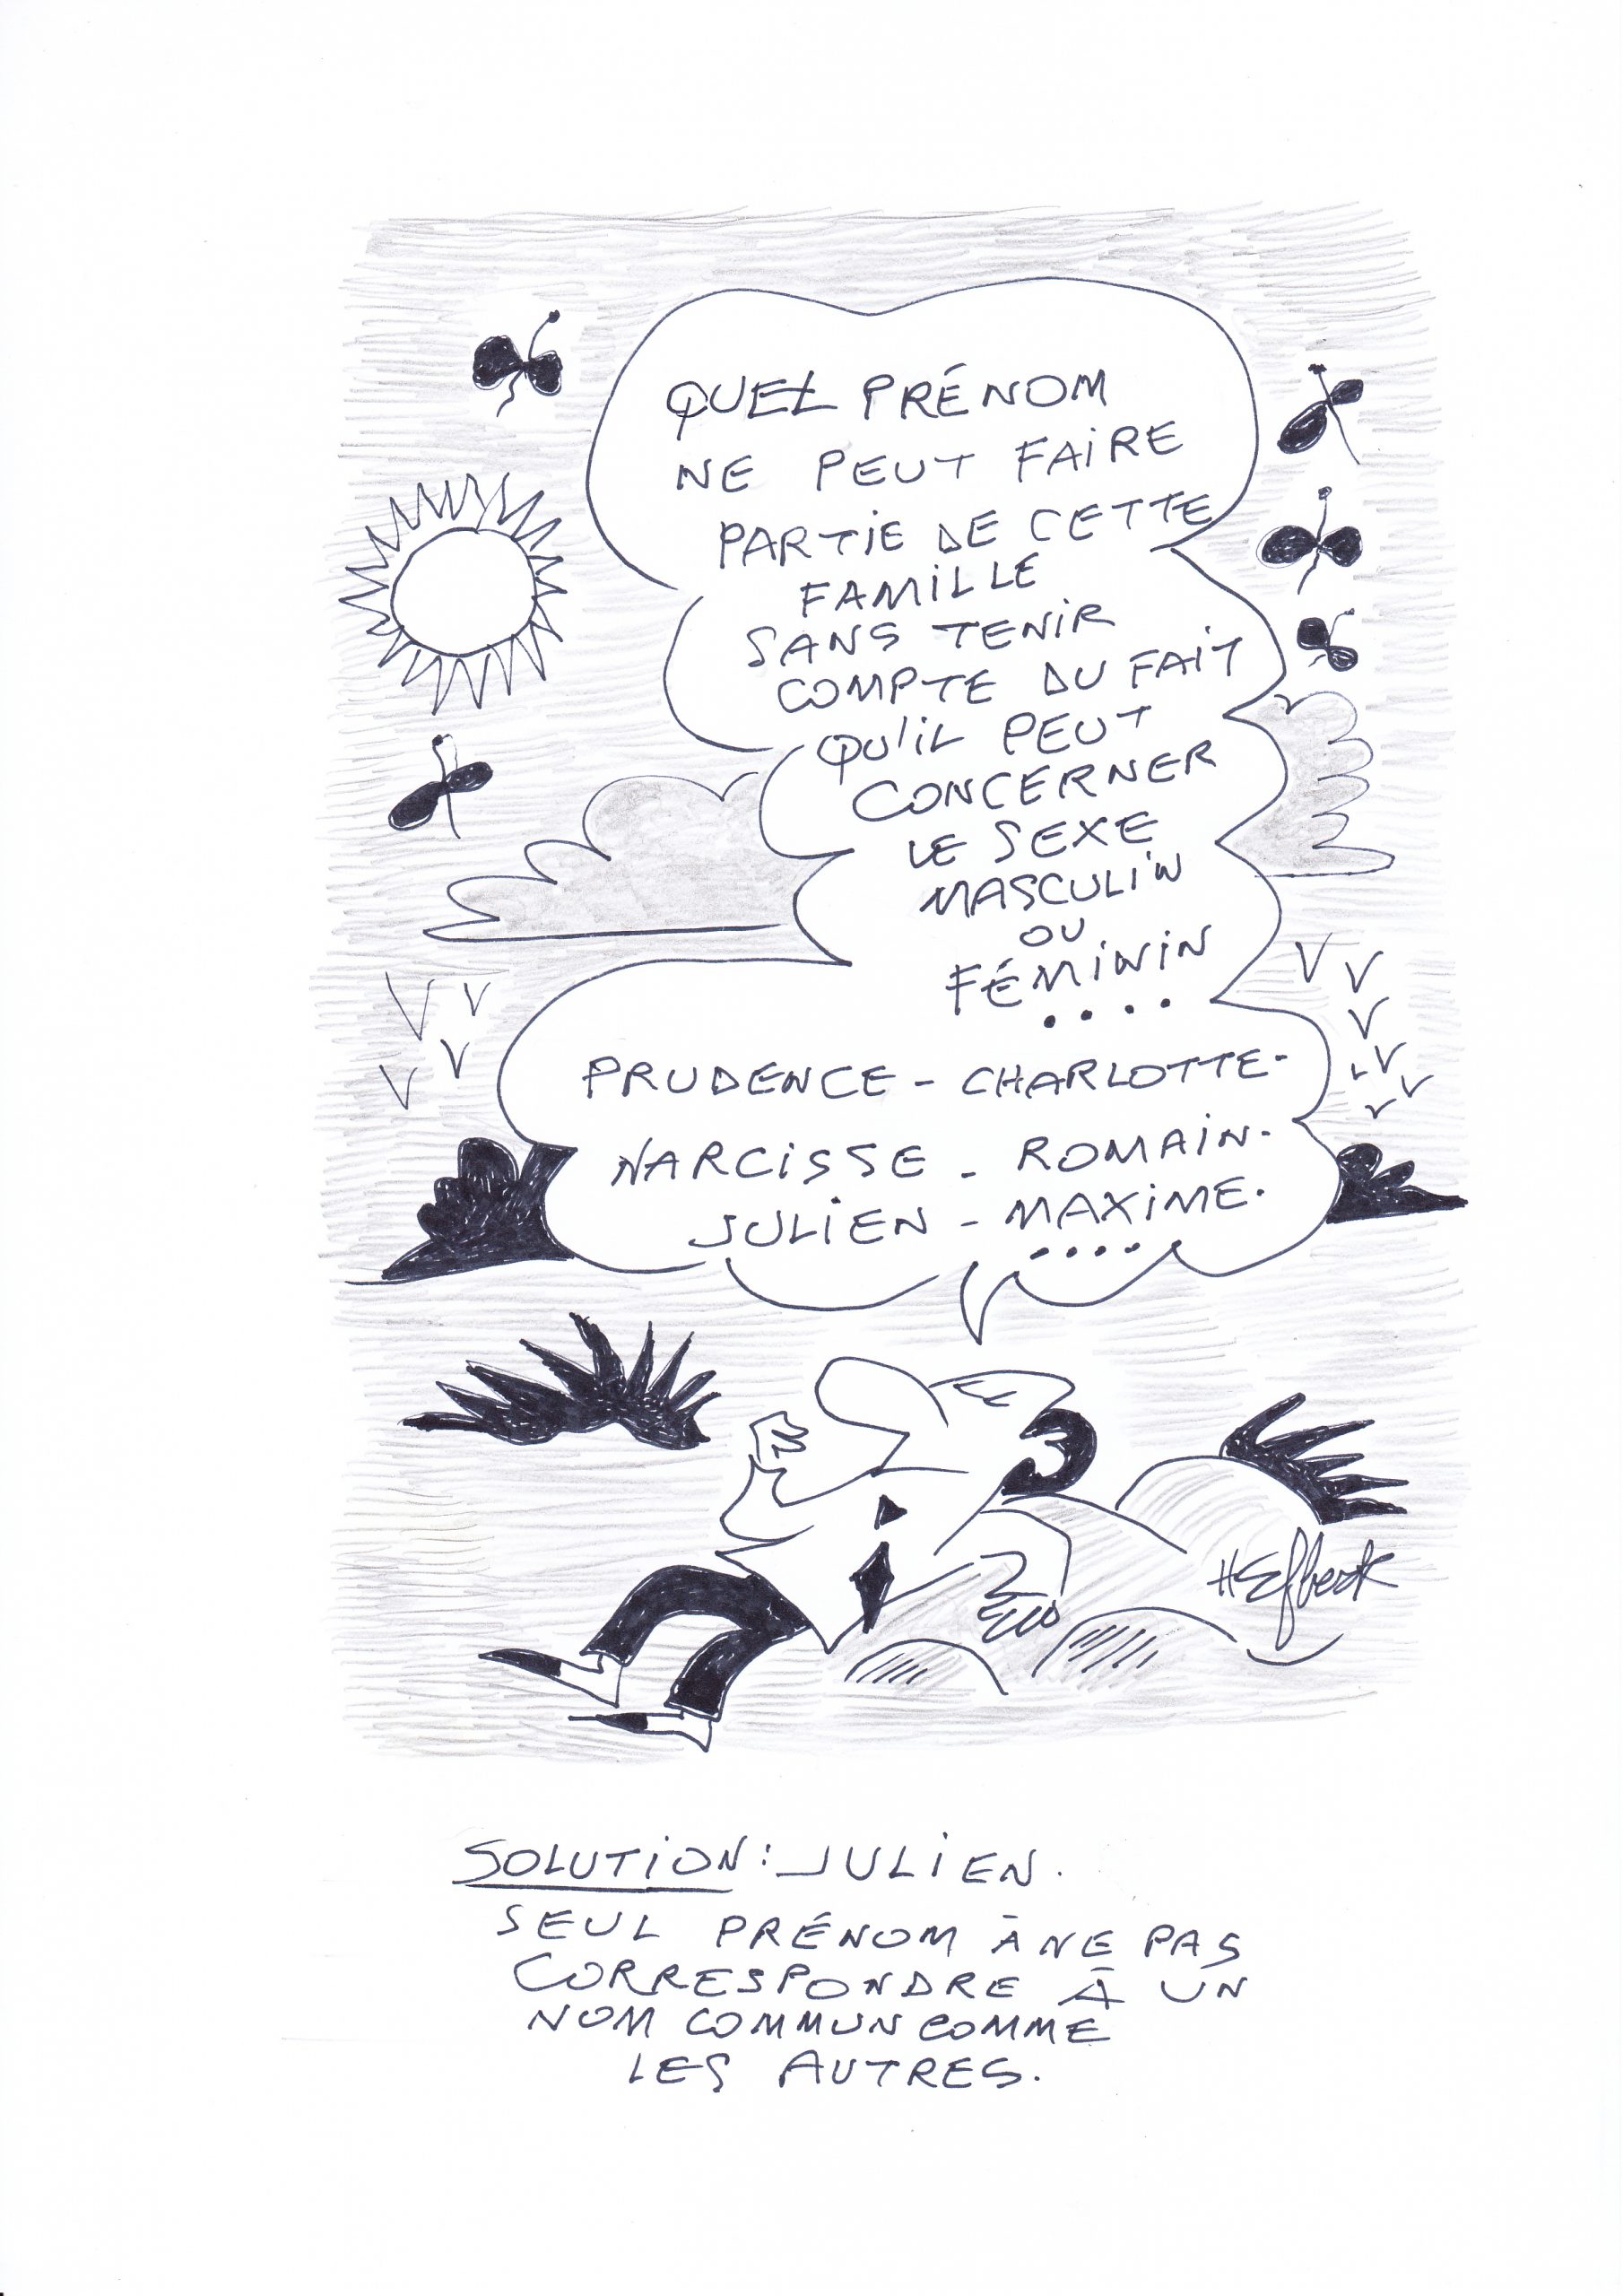 QUEL PRÉNOM
NE PEUT FAIRE
PARTIE DE CETTE
FAMILLE
SANS TENIR
COMPTE DU FAIT
QU'IL PEUT
CONCERNER
LE SEXE
MASCULIN
OU
FÉMININ
....
PRUDENCE - CHARLOTTE -
NARCISSE - ROMAIN -
JULIEN - MAXIME.
....
SOLUTION : JULIEN.
SEUL PRÉNOM À NE PAS
CORRESPONDRE À UN
NOM COMMUN COMME
LES AUTRES.